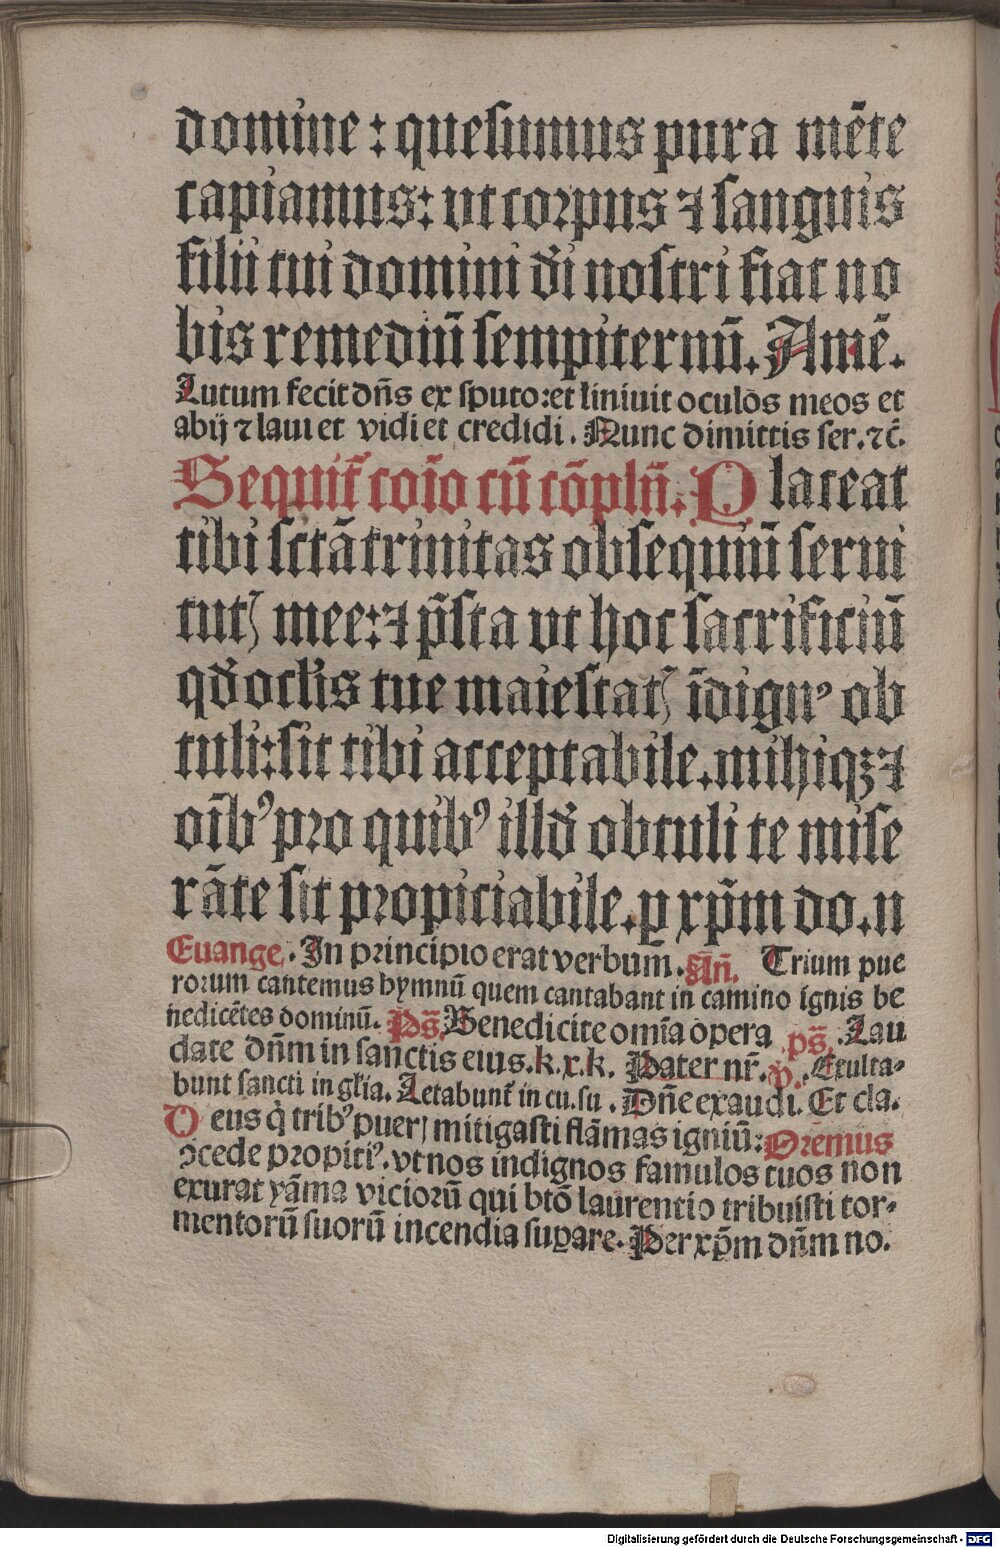 domine : quesumus pura mēte
capiamus: ut corpus ⁊ sanguis
filii tui domini dī nostri fiat no
bis remediū sempiternū. Amē.
Lutum fecit dn̄s ex sputo: et liniuit oculos meos et
abij ⁊ laui et vidi et credidi. Nunc dimittis ser. ⁊c̄.
Sequit̄ coīo cū cōplū. P laceat
tibi sctā trinitas obsequiū serui
tutꝭ mee: ⁊ p̄sta ut hoc sacrificiū
qd̄ oclīs tue maiestatꝭ īdignꝰ ob
tuli: sit tibi acceptabile. mihiqꝫ ⁊
oībꝰ pro quibꝰ illd̄ obtuli te mise
rāte sit propiciabile. ꝑ xp̄m do. n
Euange. In principio erat verbum. An̄. Trium pue
rorum cantemus hymnū quem cantabant in camino ignis be
nedicētes dominū. Ps̄. Benedicite omīa opera ps̄. Lau
date dn̄m in sanctis eius. k. x. k. Pater nr̄. ꝟ. Exulta-
bunt sancti in gl̄ia. Letabunt̄ in cu. su. Dn̄e exaudi. Et cla.
D eus q̇ tribꝰ puerꝭ mitigasti flāmas igniū: Oremus
ꝯcede propitiꝰ. vt nos indignos famulos tuos non
exurat flāma viciorū qui btō laurentio tribuisti tor-
mentorū suorū incendia suꝑare. Per xp̄m dn̄m no.
Digitalisierung gefördert durch die Deutsche Forschungsgemeinschaft - DFG